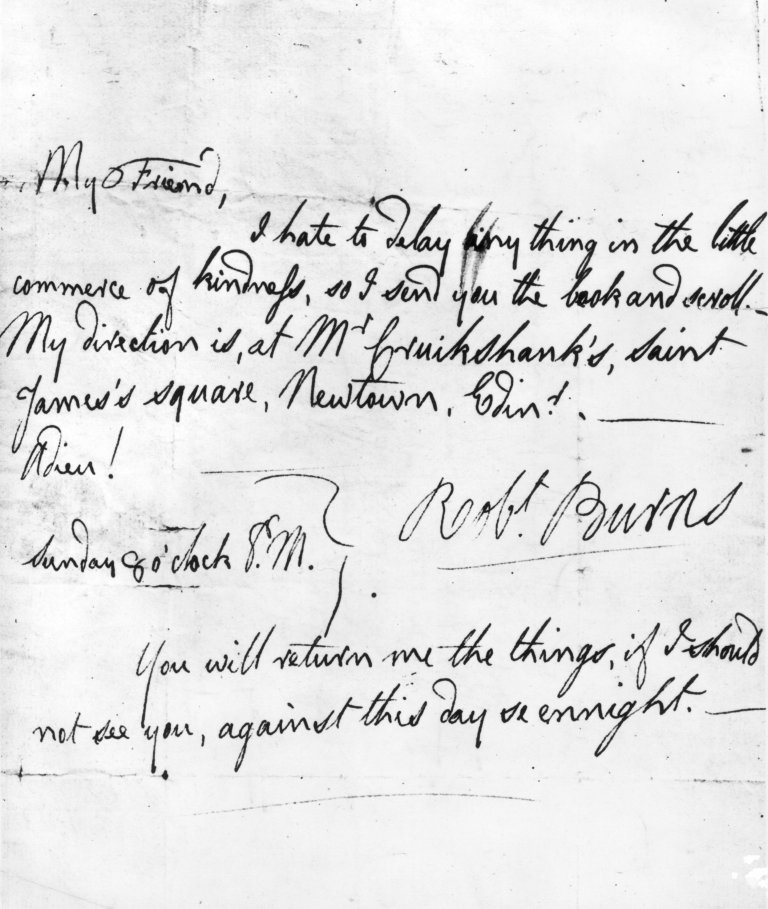 My Friend,
I hate to delay any thing in the little
commerce of kindness, so I send you the book and scroll. —
My direction is, at Mr Cruikshank's, saint
James's square, Newtown, Edinr. —
Adieu!
Robt. Burns
sunday 8 o'clock P.M.
You will return me the things, if I should
not see you, against this day se ennight. —